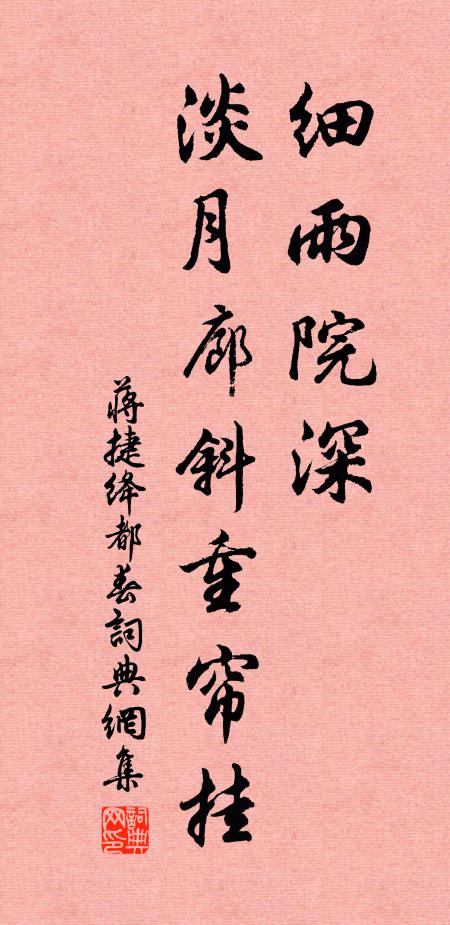 细雨院深
淡月廊斜重帘挂
蒋捷绛都春詞典網集
詞典网印